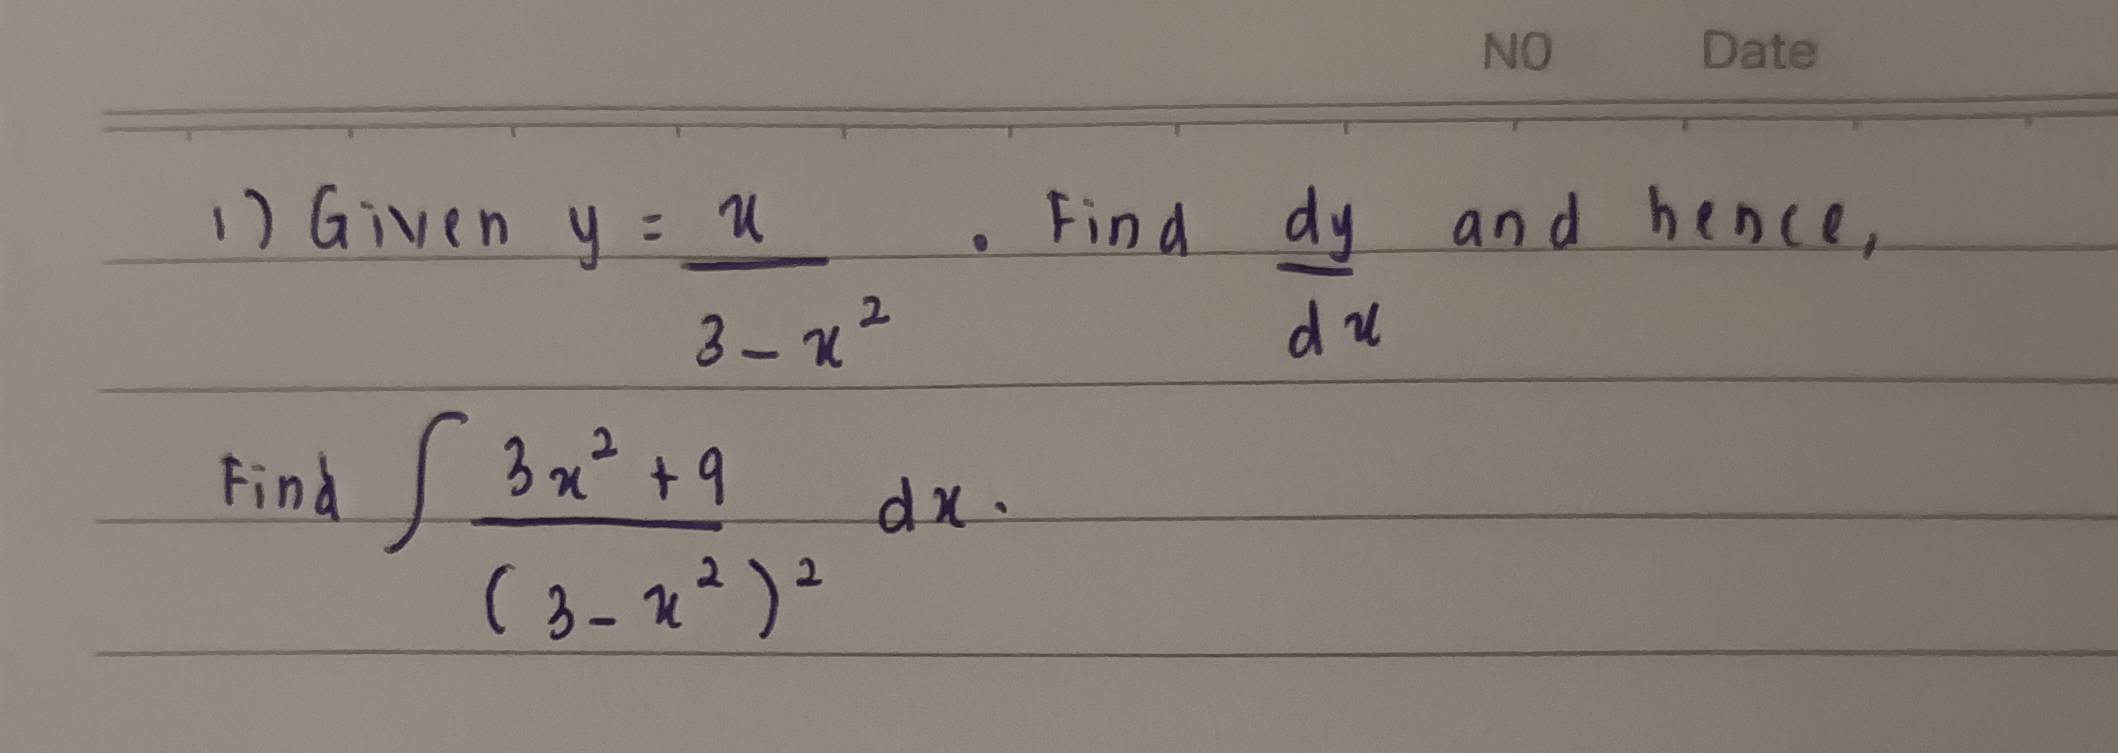 NO Date
1) Given y = x / 3 - x² . Find dy/dx and hence,
Find ∫ 3x² + 9 / (3 - x²)² dx.